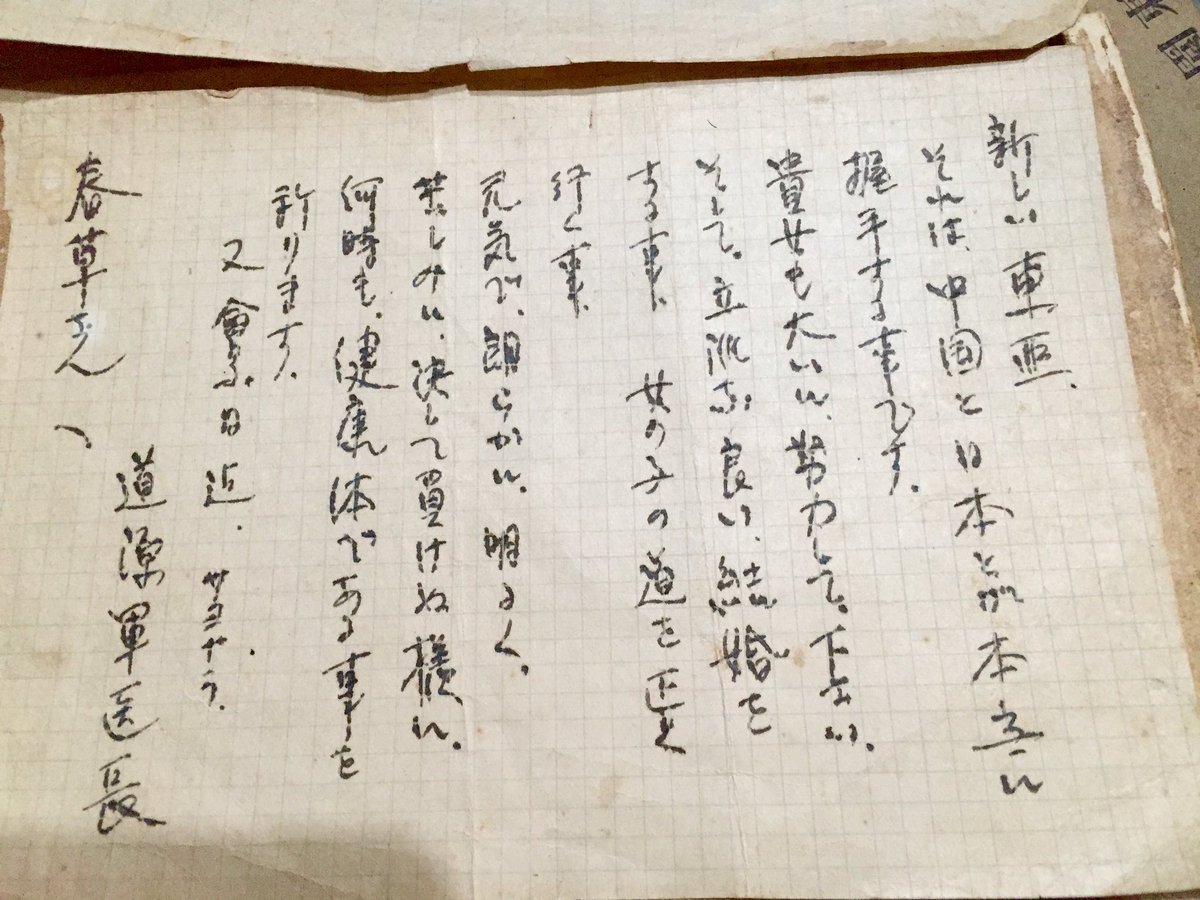 新しい東亜、
それは、中国と日本とが本当に
握手する事です。
貴女も大いに、努力して。下さい。
そして。立派な良い、結婚を
する事、女の子の道を正しく
行く事、
元気で、朗らかに。明るく。
苦しみに、決して負けぬ様に。
何時も、健康体である事を
祈ります。
又會ふ日近。サヨナラ.
道澤軍医長
春草さんへ